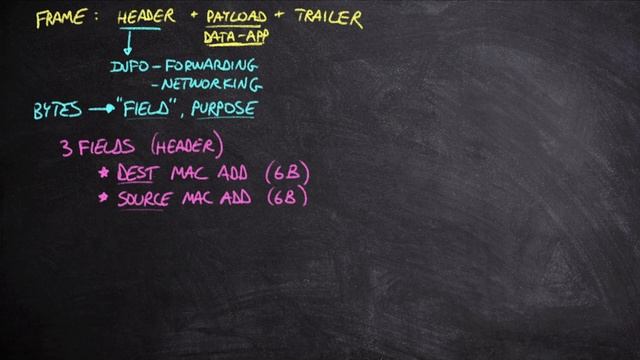 FRAME: HEADER + PAYLOAD + TRAILER
DATA-APP
INFO-FORWARDING
-NETWORKING
BYTES → "FIELD", PURPOSE
3 FIELDS (HEADER)
* DEST MAC ADD (6B)
* SOURCE MAC ADD (6B)